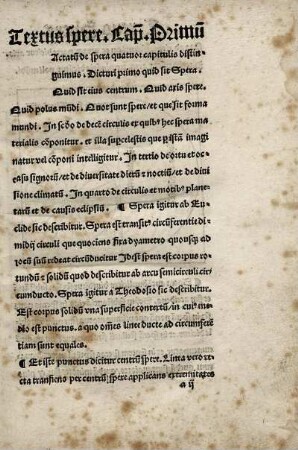 Textus spere. Cap̄. Primū
Actatū de spera quatuor capitulis distin
guimus. Dicturi primo quid sit Spera.
Quid sit eius centrum. Quid axis spere.
Quid polus mūdi. Quot sunt spere/et que sit forma
mundi. In scd̄o de decē circulis ex quibꝰ hec spera ma
terialis cōponitur. et illa supcelestis que p istā imagi
natur vel cōponi intelligitur. In tertio de ortu et oc-
casu signorū/et de diuersitate dierū ⁊ noctiū/et de di
uisione climatū. In quarto de circulis et motibꝰ plane-
tarū et de causis eclipsiū. ¶ Spera igitur ab Eu
clide sic describitur. Spera est transitꝰ circūferentie di-
midij circuli que quociens fixa dyametro quousqꝫ ad
locū suū redeat circūducitur Id est spera est corpus ro-
tundū ⁊ solidū quod describitur ab arcu semicirculi cir
cunducto. Spera igitur a Theodosio sic describitur.
Est corpus solidū vna superficie contentū/in cuiꝰ me-
dio est punctus. a quo om̄es linee ducte ad circumferē
tiam sunt equales.
¶ Et iste punctus dicitur centrū spere. Linea vero re
cta transiens per centrū spere applicans extremitates
a ij